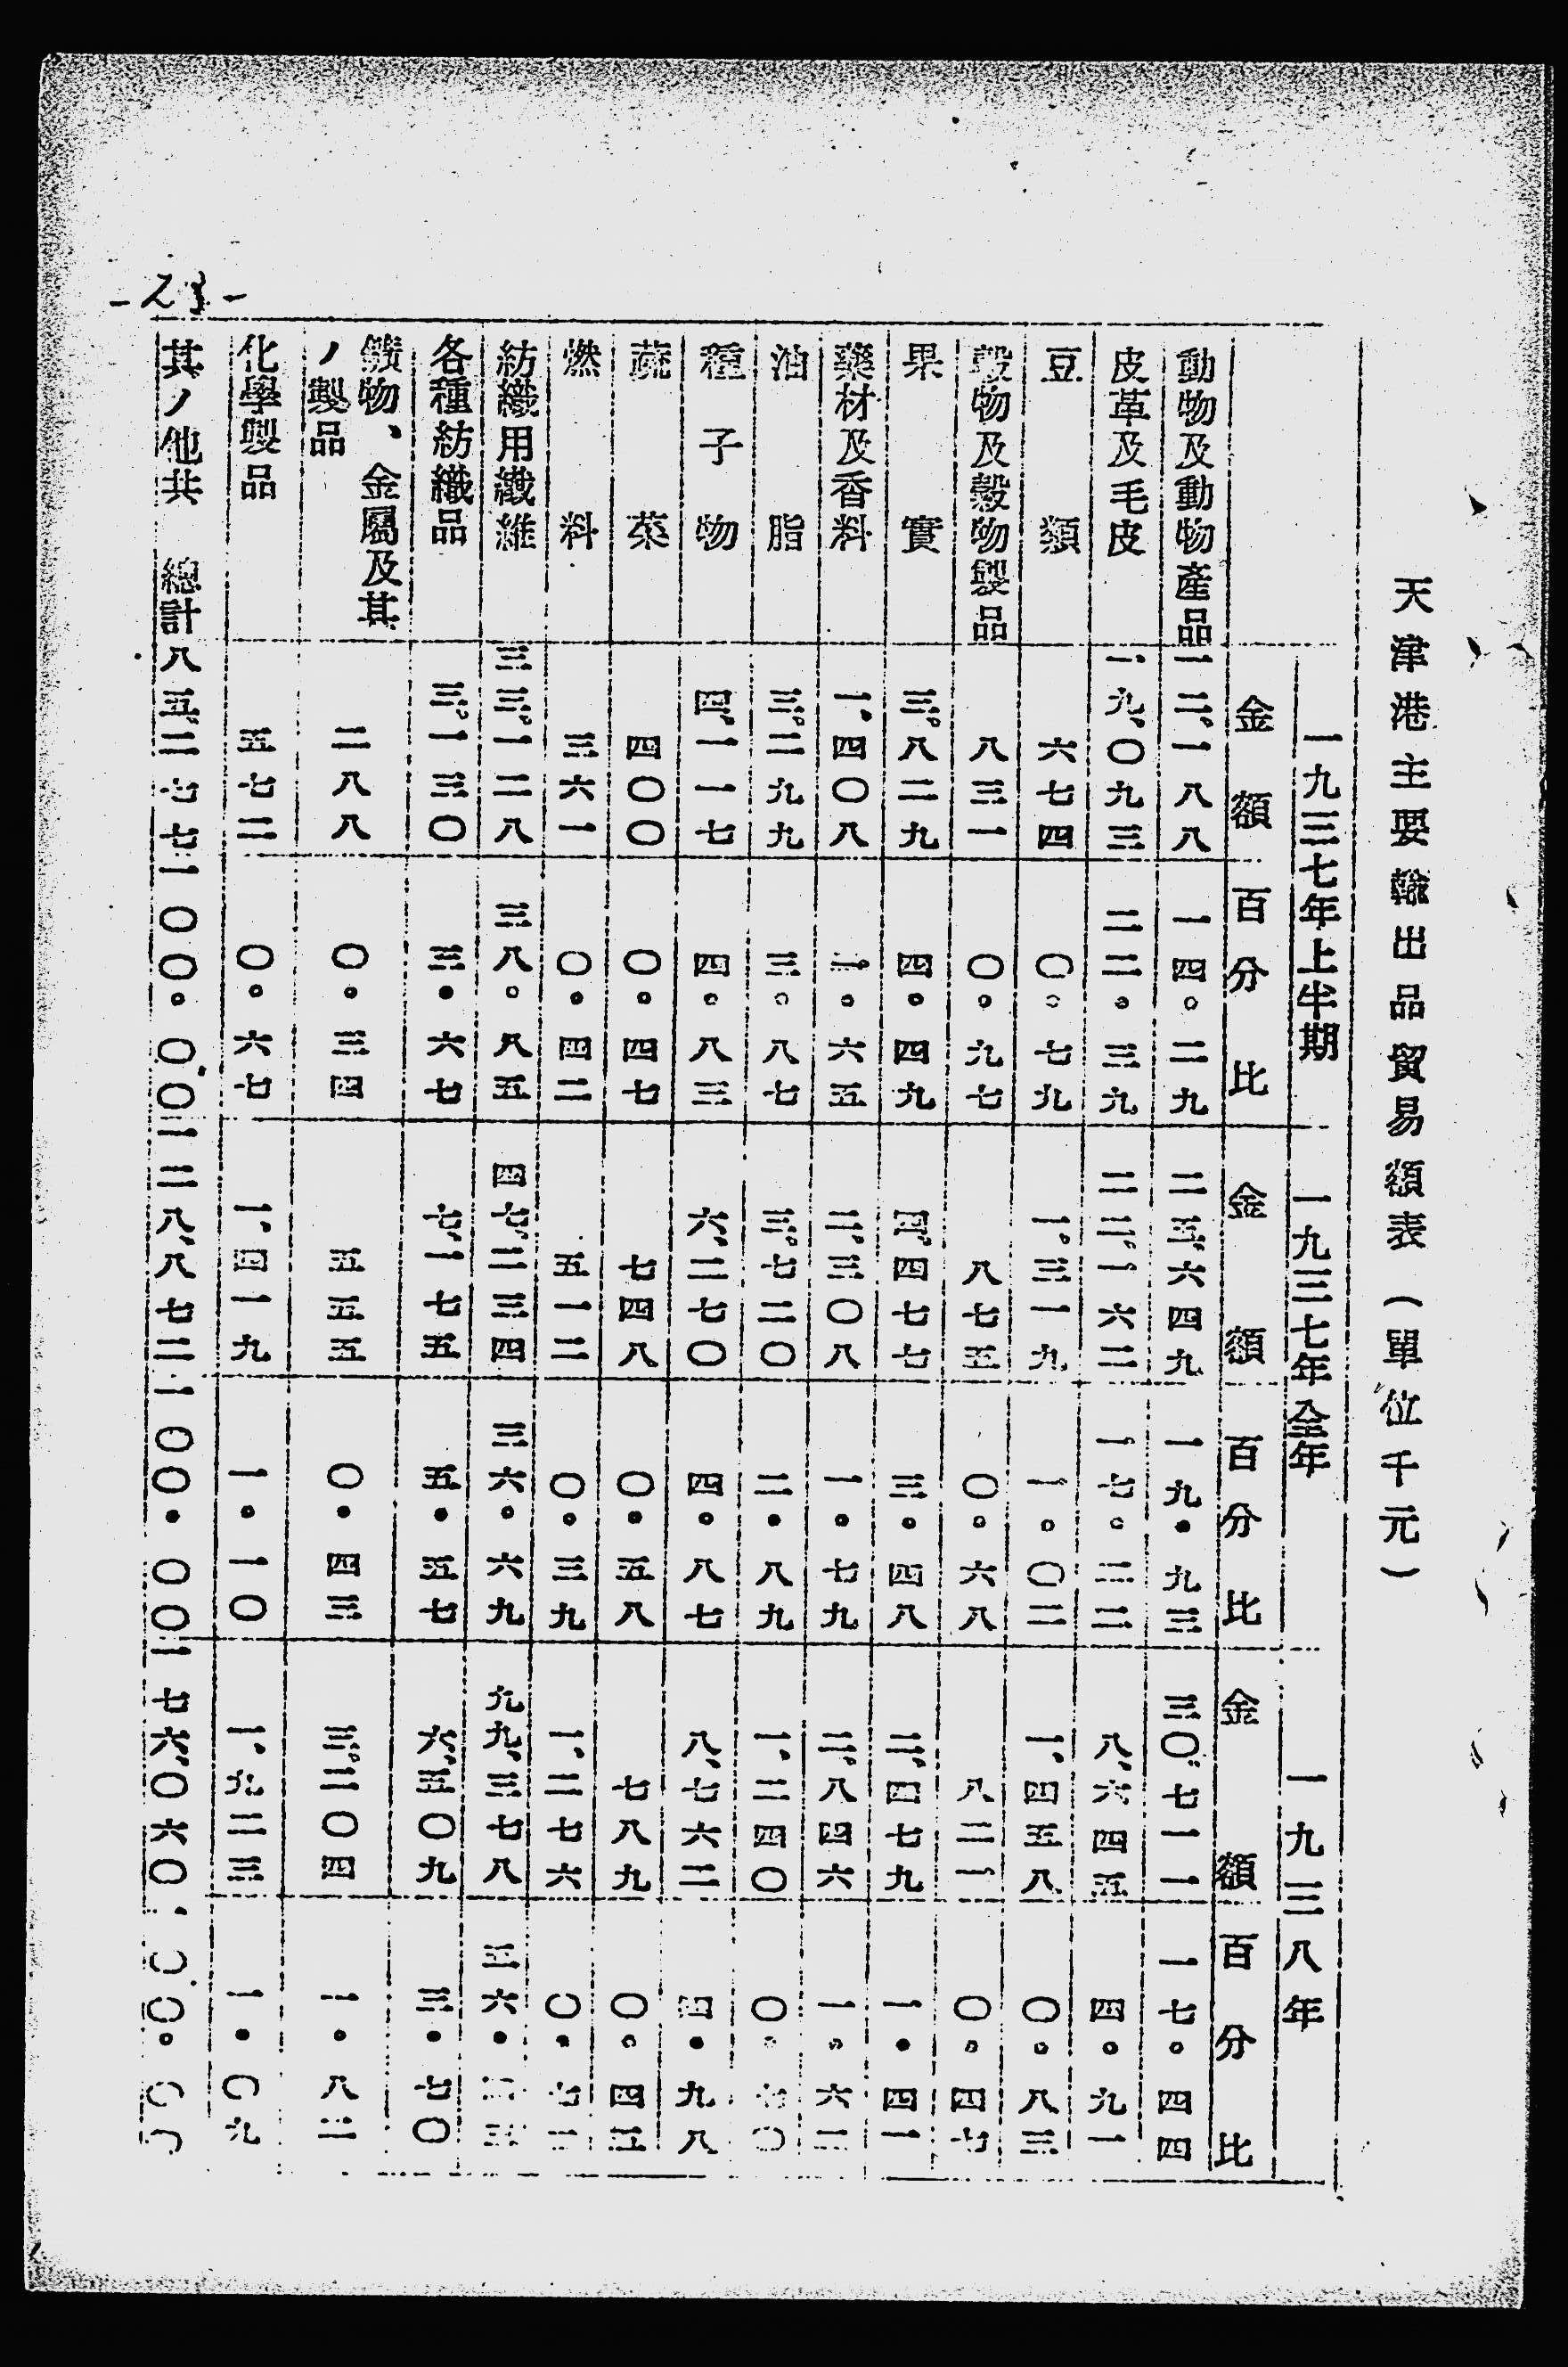 天津港主要輸出品貿易額表(單位千元)
一九三七年上半期 一九三七年全年 一九三八年
金額 百分比 金額 百分比 金額 百分比
動物及動物產品 一二、一八八 一四。二九 二五、六四九 一九。九三 三〇、七一一 一七。四四
皮革及毛皮 一九、〇九三 二二。三九 二二、一六二 一七。二二 八、六四五 四。九一
豆類 六七四 〇。七九 一、三一九 一。〇二 一、四五八 〇。八三
穀物及穀物製品 八三一 〇。九七 八七五 〇。六八 八二一 〇。四七
果實 三、八二九 四。四九 四、四七七 三。四八 二、四七九 一。四一
藥材及香料 一、四〇八 一。六五 二、三〇八 一。七九 二、八四六 一。六二
油脂 三、二九九 三。八七 三、七二〇 二。八九 一、二四〇 〇。七〇
種子物 四、一一七 四。八三 六、二七〇 四。八七 八、七六二 四。九八
蔬菜 四〇〇 〇。四七 七四八 〇。五八 七八九 〇。四五
燃料 三六一 〇。四二 五一二 〇。三九 一、二七六 〇。七二
紡織用纖維 三三、一二八 三八。八五 四七、二三四 三六。六九 九九、三七八
各種紡織品 三、一三〇 三。六七 七、一七五 五。五七 六、五〇九 三。七〇
鑛物、金屬及其
ノ製品 二八八 〇。三四 五五五 〇。四三 三、二〇四 一。八二
化學製品 五七二 〇。六七 一、四一九 一。一〇 一、九二三 一。〇九
其ノ他共 總計 八五、二七七 一〇〇。〇〇 一二八、八七二 一〇〇。〇〇 一七六、〇六〇 一〇〇。〇〇